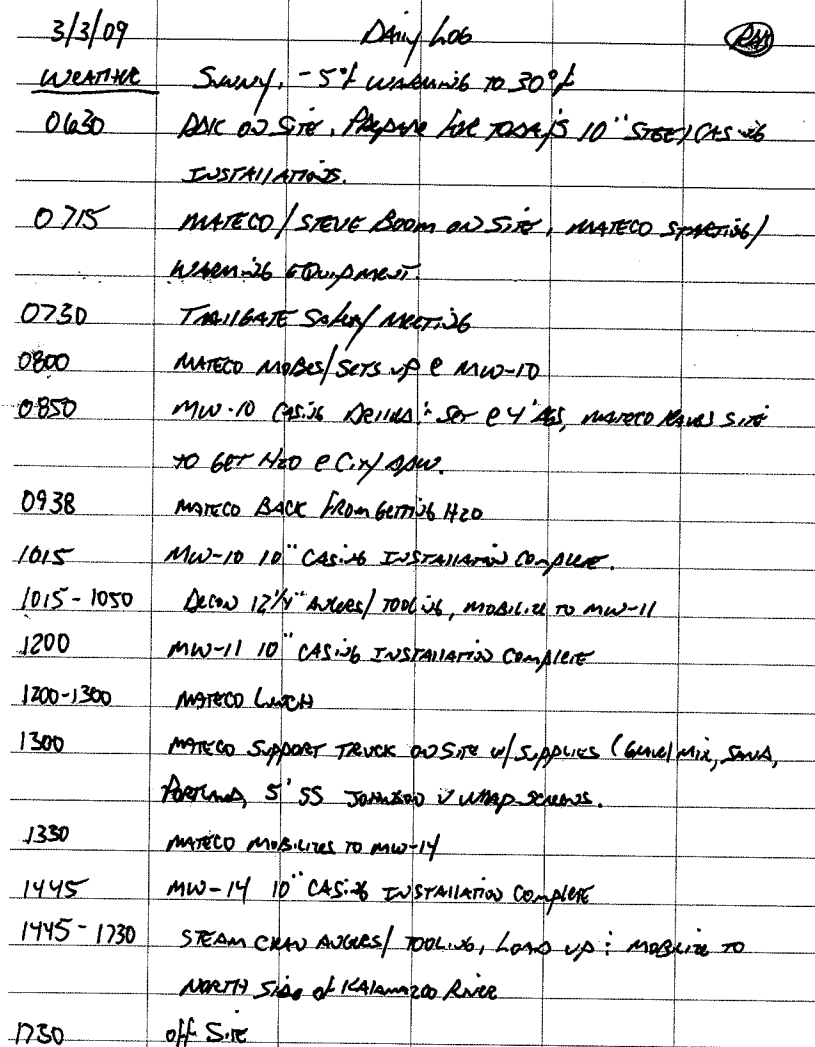 3/3/09 Daily Log
WEATHER SUNNY, -5°F WARMING TO 30°F
0630 ON SITE, PREPARE FOR TODAY'S 10" STEEL CASING
INSTALLATIONS.
0715 MATECO/STEVE BOOM ON SITE, MATECO STARTING/
WARMING EQUIPMENT.
0730 TAILGATE SAFETY MEETING
0800 MATECO MOBES/SETS UP @ MW-10
0850 MW-10 CASING DRILLED & SET @ 4' AGS, MATECO LEAVES SITE
TO GET H2O @ CITY DPW.
0938 MATECO BACK FROM GETTING H2O
1015 MW-10 10" CASING INSTALLATION COMPLETE.
1015-1050 DECON 12 1/4" AUGERS/TOOLING, MOBILIZE TO MW-11
1200 MW-11 10" CASING INSTALLATION COMPLETE
1200-1300 MATECO LUNCH
1300 MATECO SUPPORT TRUCK ON SITE W/SUPPLIES (GRAVEL MIX, SAND,
PORTLAND, 5' SS JOHNSON V WRAP SCREENS.
1330 MATECO MOBILIZES TO MW-14
1445 MW-14 10" CASING INSTALLATION COMPLETE
1445-1730 STEAM CLEAN AUGERS/TOOLING, LOAD UP & MOBILIZE TO
NORTH SIDE OF KALAMAZOO RIVER
1730 OFF SITE